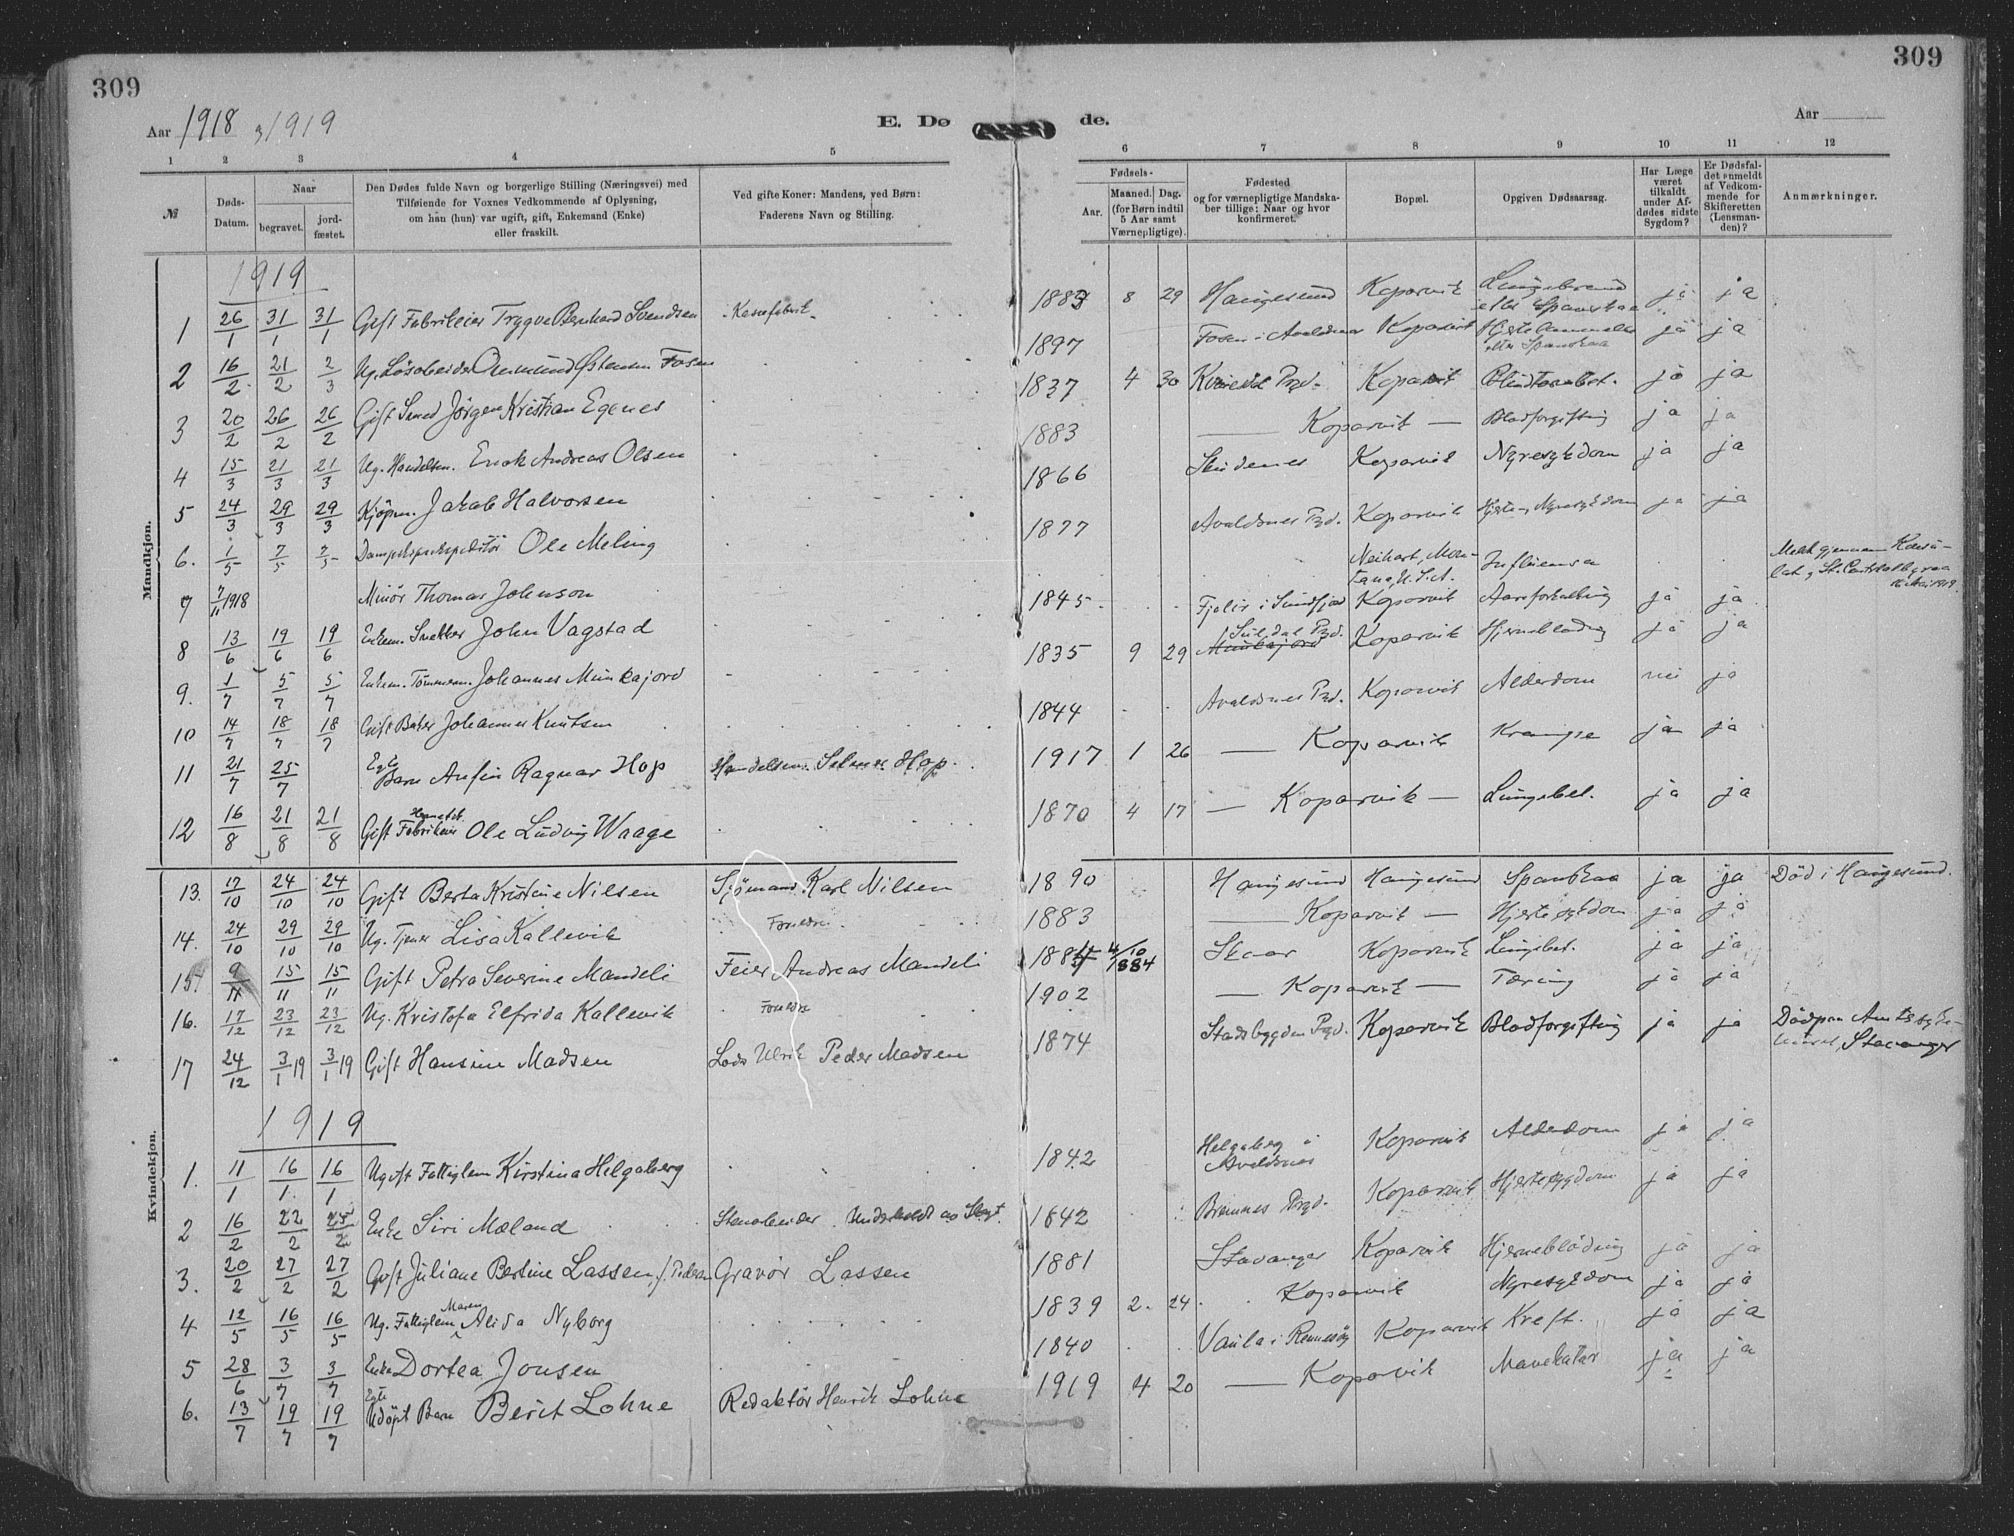 309
309
Aar 1918 1919
E. Dø de.
Aar
1 2 3 4 5 6 7 8 9 10 11 12
№
Døds-Datum.
Naar
begravet.
jord-fæstet.
Den Dødes fulde Navn og borgerlige Stilling (Næringsvei) med
Tilføiende for Voxnes Vedkommende af Oplysning,
om han (hun) var ugift, gift, Enkemand (Enke)
eller fraskilt.
Ved gifte Koner: Mandens, ved Børn:
Faderens Navn og Stilling.
Fødsels-
Aar.
Maaned. Dag.
(for Børn indtil
5 Aar samt
Værnepligtige).
Fødested
og for værnepligtige Mandska-
ber tillige: Naar og hvor
konfirmeret.
Bopæl.
Opgiven Dødsaarsag.
Har Læge
været
tilkaldt
under Af-
dødes sidste
Sygdom?
Er Dødsfal-
det anmeldt
af Vedkom-
mende for
Skifteretten
(Lensman-
den)?
Anmærkninger.
Mandkjøn.
1919
1 26/1 31/1 31/1 Gift Fabrikeier Trygve Bernhard Svendsen 1883 8 29 Haugesund Kopervik Lungebrand eller Spanskaa ja ja
2 16/2 21/2 2/3 Ug. Løsarbeider Østensen Fosen 1897 Fosen i Avaldsnes Kopervik eller Spanskaa ja ja
3 20/2 26/2 26/2 Gift Smed Jørgen Kristian Egenes 1837 4 30 Prgd. Kopervik ja ja
4 15/3 21/3 21/3 Ug. Handelsm. Enok Andreas Olsen 1883 — Kopervik — Blodforgiftning ja ja
5 24/3 29/3 29/3 Kjøpm. Jakob Halvorsen 1866 Skudenes Kopervik Nyresykdom ja ja
6. 1/5 7/5 7/5 Dampskipsekspeditør Ole Meling 1877 Avaldsnes Prgd. Kopervik Hjerte- Nyresykdom ja ja
7 7/11 1918 Minør Thomas Johnson Neihart, Mon-tana, U.S.A. Influensa Meldt gjennem Konsu-
8 13/6 19/6 19/6 Enkem. Snekker John Vagstad 1845 Fjeler i Sundfjord Kopervik Aareforkalkning ja ja
9. 1/7 5/7 5/7 Enkem. Tømmerm. Johannes Munkajord 1835 9 29 Suldal Prgd. Munkajord Kopervik Hjerneblødnig ja ja
10 14/7 18/7 18/7 Gift Baker Johannes Knutsen 1844 Avaldsnes Prgd. Kopervik Alderdom nei ja
11 21/7 25/7 Egte Barn Anfin Ragnar Hop Handelsm. Selmer Hop 1917 1 26 — Kopervik Krampe ja ja
12 16/8 21/8 21/8 Gift Hermetik Fabrikeier Ole Ludvig Waage 1870 4 17 — Kopervik — Lungebet. ja ja
Kvindekjøn.
13. 17/10 24/10 24/10 Gift Berta Kristine Nilsen Sjømand Karl Nilsen 1890 Haugesund Haugesund Spanskaa ja ja Død i Haugesund.
14. 24/10 29/10 29/10 Ug. Tjener Lisa Kallevik Foreldre 1883 — Kopervik — Hjertesykdom ja ja
15. 9/11 15/11 15/11 Gift Petra Severine Mandeli Feier Andreas Mandeli 1884 4/10 1884 Skaar Kopervik Lungebet. ja ja
16. 17/12 23/12 23/12 Ug. Kristofa Elfrida Kallevik Foreldre 1902 — Kopervik — Tæring ja ja
17 24/12 3/1 19 3/1 19 Gift Hansine Madsen Lods Ulrik Peder Madsen 1874 Stadsbygden Prgd. Kopervik Blodforgiftnig ja ja Død paa Amtssyke- Stavanger
1919
1. 11/1 16/1 16/1 Ugift Fattiglem Kirstina Helgaberg 1842 Helgaberg i Avaldsnes Kopervik Alderdom ja ja
2 16/2 22/2 Enke Siri Mæland Stenarbeider Underholdt av Slegt. 1842 Bremnes Prgd. Kopervik Hjertesygdom ja ja
3. 20/2 27/2 27/2 Gift Juliane Bertine Lassen f. Pedersen Gravør Lassen 1881 Stavanger Kopervik Hjerneblødnig ja ja
4 12/5 16/5 16/5 Ug. Fattiglem Maren Alida Nyborg 1839 2. 24 Kopervik Nyresykdom ja ja
5 28/6 3/7 3/7 Enke Dortea Jonsen 1840 Vaula i Rennesøy Kopervik Kreft. ja ja
6. 13/7 19/7 19/7 Egte Udøpt Barn Berit Lohne Redaktør Henrik Lohne 1919 4 20 — Kopervik Mavekatar ja ja